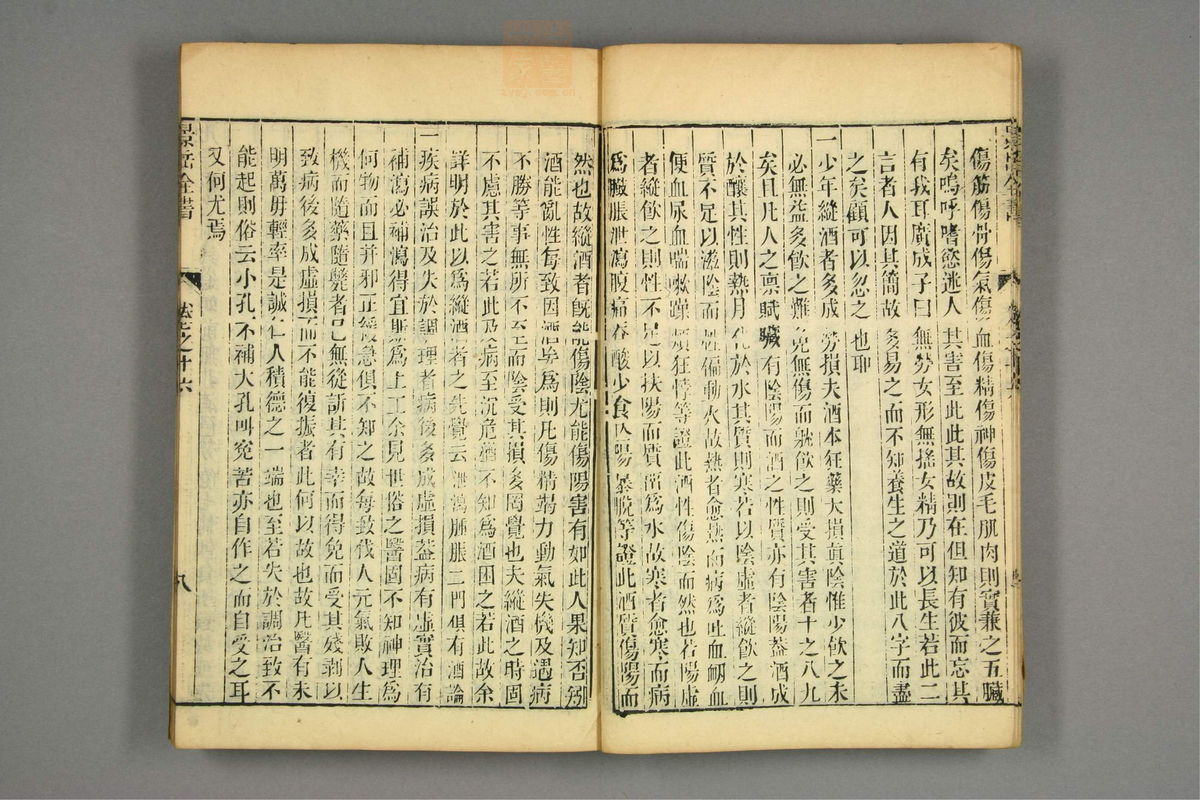 傷筋傷骨傷氣傷血傷精傷神傷皮毛肌肉則實兼之五臟
矣嗚呼嗜慾迷人其害至此此其故則在但知有彼而忘其
有我耳廣成子曰無勞女形無搖女精乃可以長生若此二
言者人因其簡故多易之而不知養生之道於此八字而盡
之矣顧可以忽之也耶
一少年縱酒者多成勞損夫酒本狂藥大損眞陰惟少飲之未
必無益多飲之難免無傷而飲之則受其害者十之八九
矣且凡人之禀賦臟有陰陽而酒之性質亦有陰陽葢酒成
於釀其性則熱月化於水其質則寒若以陰虛者縱飲之則
質不足以滋陰而性偏動火故熱者愈熱而病爲吐血衂血
便血尿血喘嗽躁煩狂悖等證此酒性傷陰而然也若陽虛
者縱飲之則性不足以扶陽而質留爲水故寒者愈寒而病
爲臟脹泄瀉腹痛吞酸少食亡陽暴脫等證此酒質傷陽而
然也故縱酒者旣能傷陰尤能傷陽害有如此人果知否矧
酒能亂性每致因酒爲則凡傷精竭力動氣失機及遇病
不勝等事無所不至而陰受其損多罔覺也夫縱酒之時固
不慮其害之若此及病至沉危猶不知爲酒困之若此故余
詳明於此以爲縱酒者之先覺云泄瀉腫脹二門俱有酒論
一疾病誤治及失於調理者病後多成虛損葢病有虛實治有
補瀉必補瀉得宜斯爲上工余見世俗之醫固不知神理爲
何物而且并邪正緩急俱不知之故每致伐人元氣敗人生
機而隨藥隨斃者已無從訴其有幸而得免而受其殘剥以
致病後多成虛損而不能復振者此何以故也故凡醫有未
明萬毋輕率是誠仁人積德之一端也至若失於調治致不
能起則俗云小孔不補大孔叫冤苦亦自作之而自受之耳
又何尤焉
景岳全書
卷之十六
八